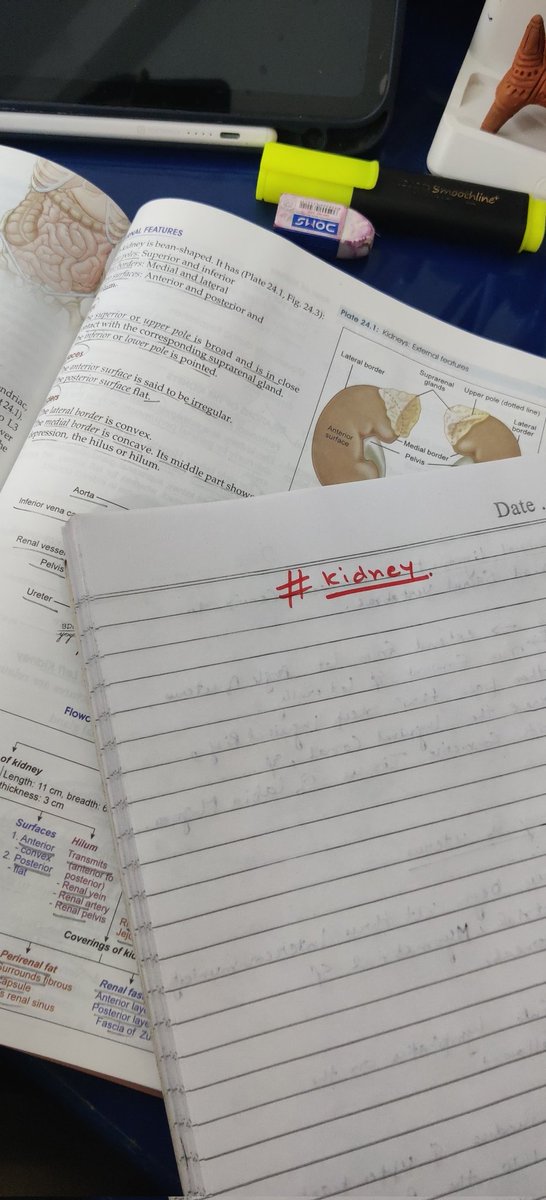 smoothline+
DOMS
NAL FEATURES
kidney is bean-shaped. It has (Plate 24.1, Fig. 24.3):
poles: Superior and inferior
borders: Medial and lateral
surfaces: Anterior and posterior and
superior or upper pole is broad and is in close
contact with the corresponding suprarenal gland.
inferior or lower pole is pointed.
anterior surface is said to be irregular.
posterior surface flat.
lateral border is convex.
medial border is concave. Its middle part shows
depression, the hilus or hilum.
Plate 24.1: Kidneys: External features
Lateral border
Suprarenal
glands
Upper pole (dotted line)
Lateral
border
Anterior
surface
Medial border
Pelvis
Aorta
Inferior vena ca
Renal vesse
Pelvis
Ureter
Flowc
of kidney
Length: 11 cm, breadth: 6
thickness: 3 cm
Surfaces
1. Anterior
- convex
2. Posterior
- flat
Hilum
Transmits
(anterior to
posterior)
- Renal vein
- Renal artery
- Renal pelvis
Coverings of kid
Perirenal fat
Surrounds fibrous
capsule
renal sinus
Renal fas
Anterior laye
Posterior laye
Fascia of Zu
Date
# kidney.